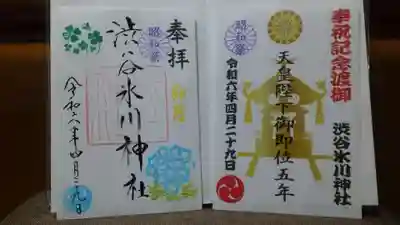 奉拝
昭和祭
渋谷氷川神社
令和六年四月二十九日
奉祝記念渡御
渋谷氷川神社
天皇陛下御即位五年
昭和祭
令和六年四月二十九日